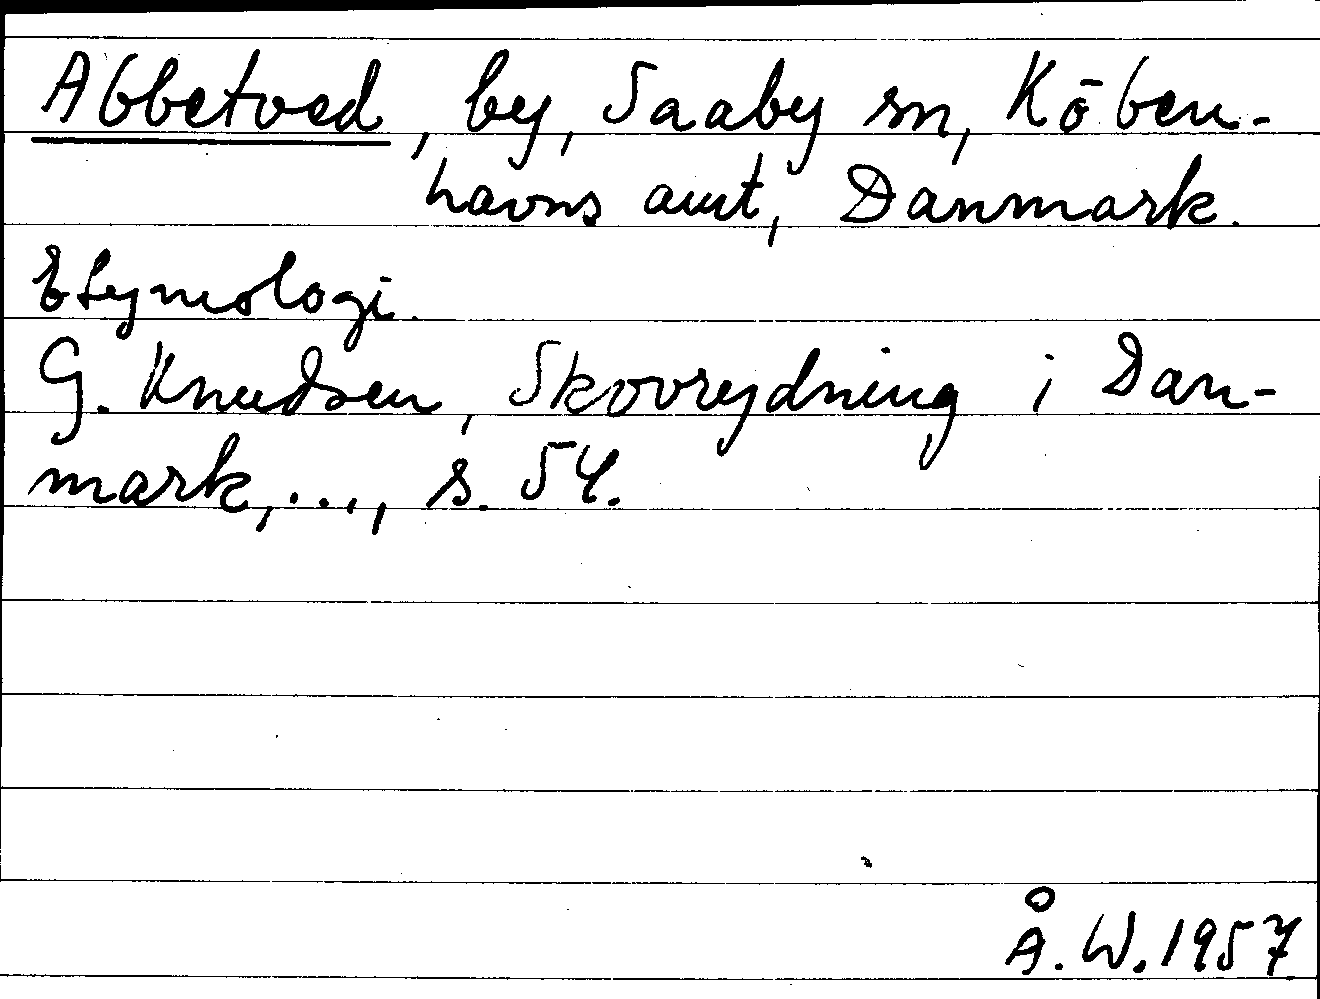 Abbetved, by, Saaby sn, Köben-
havns amt, Danmark.
Etymologi.
G. Knudsen, Skovrydning i Dan-
mark,..., s. 54.
Å. W. 1957